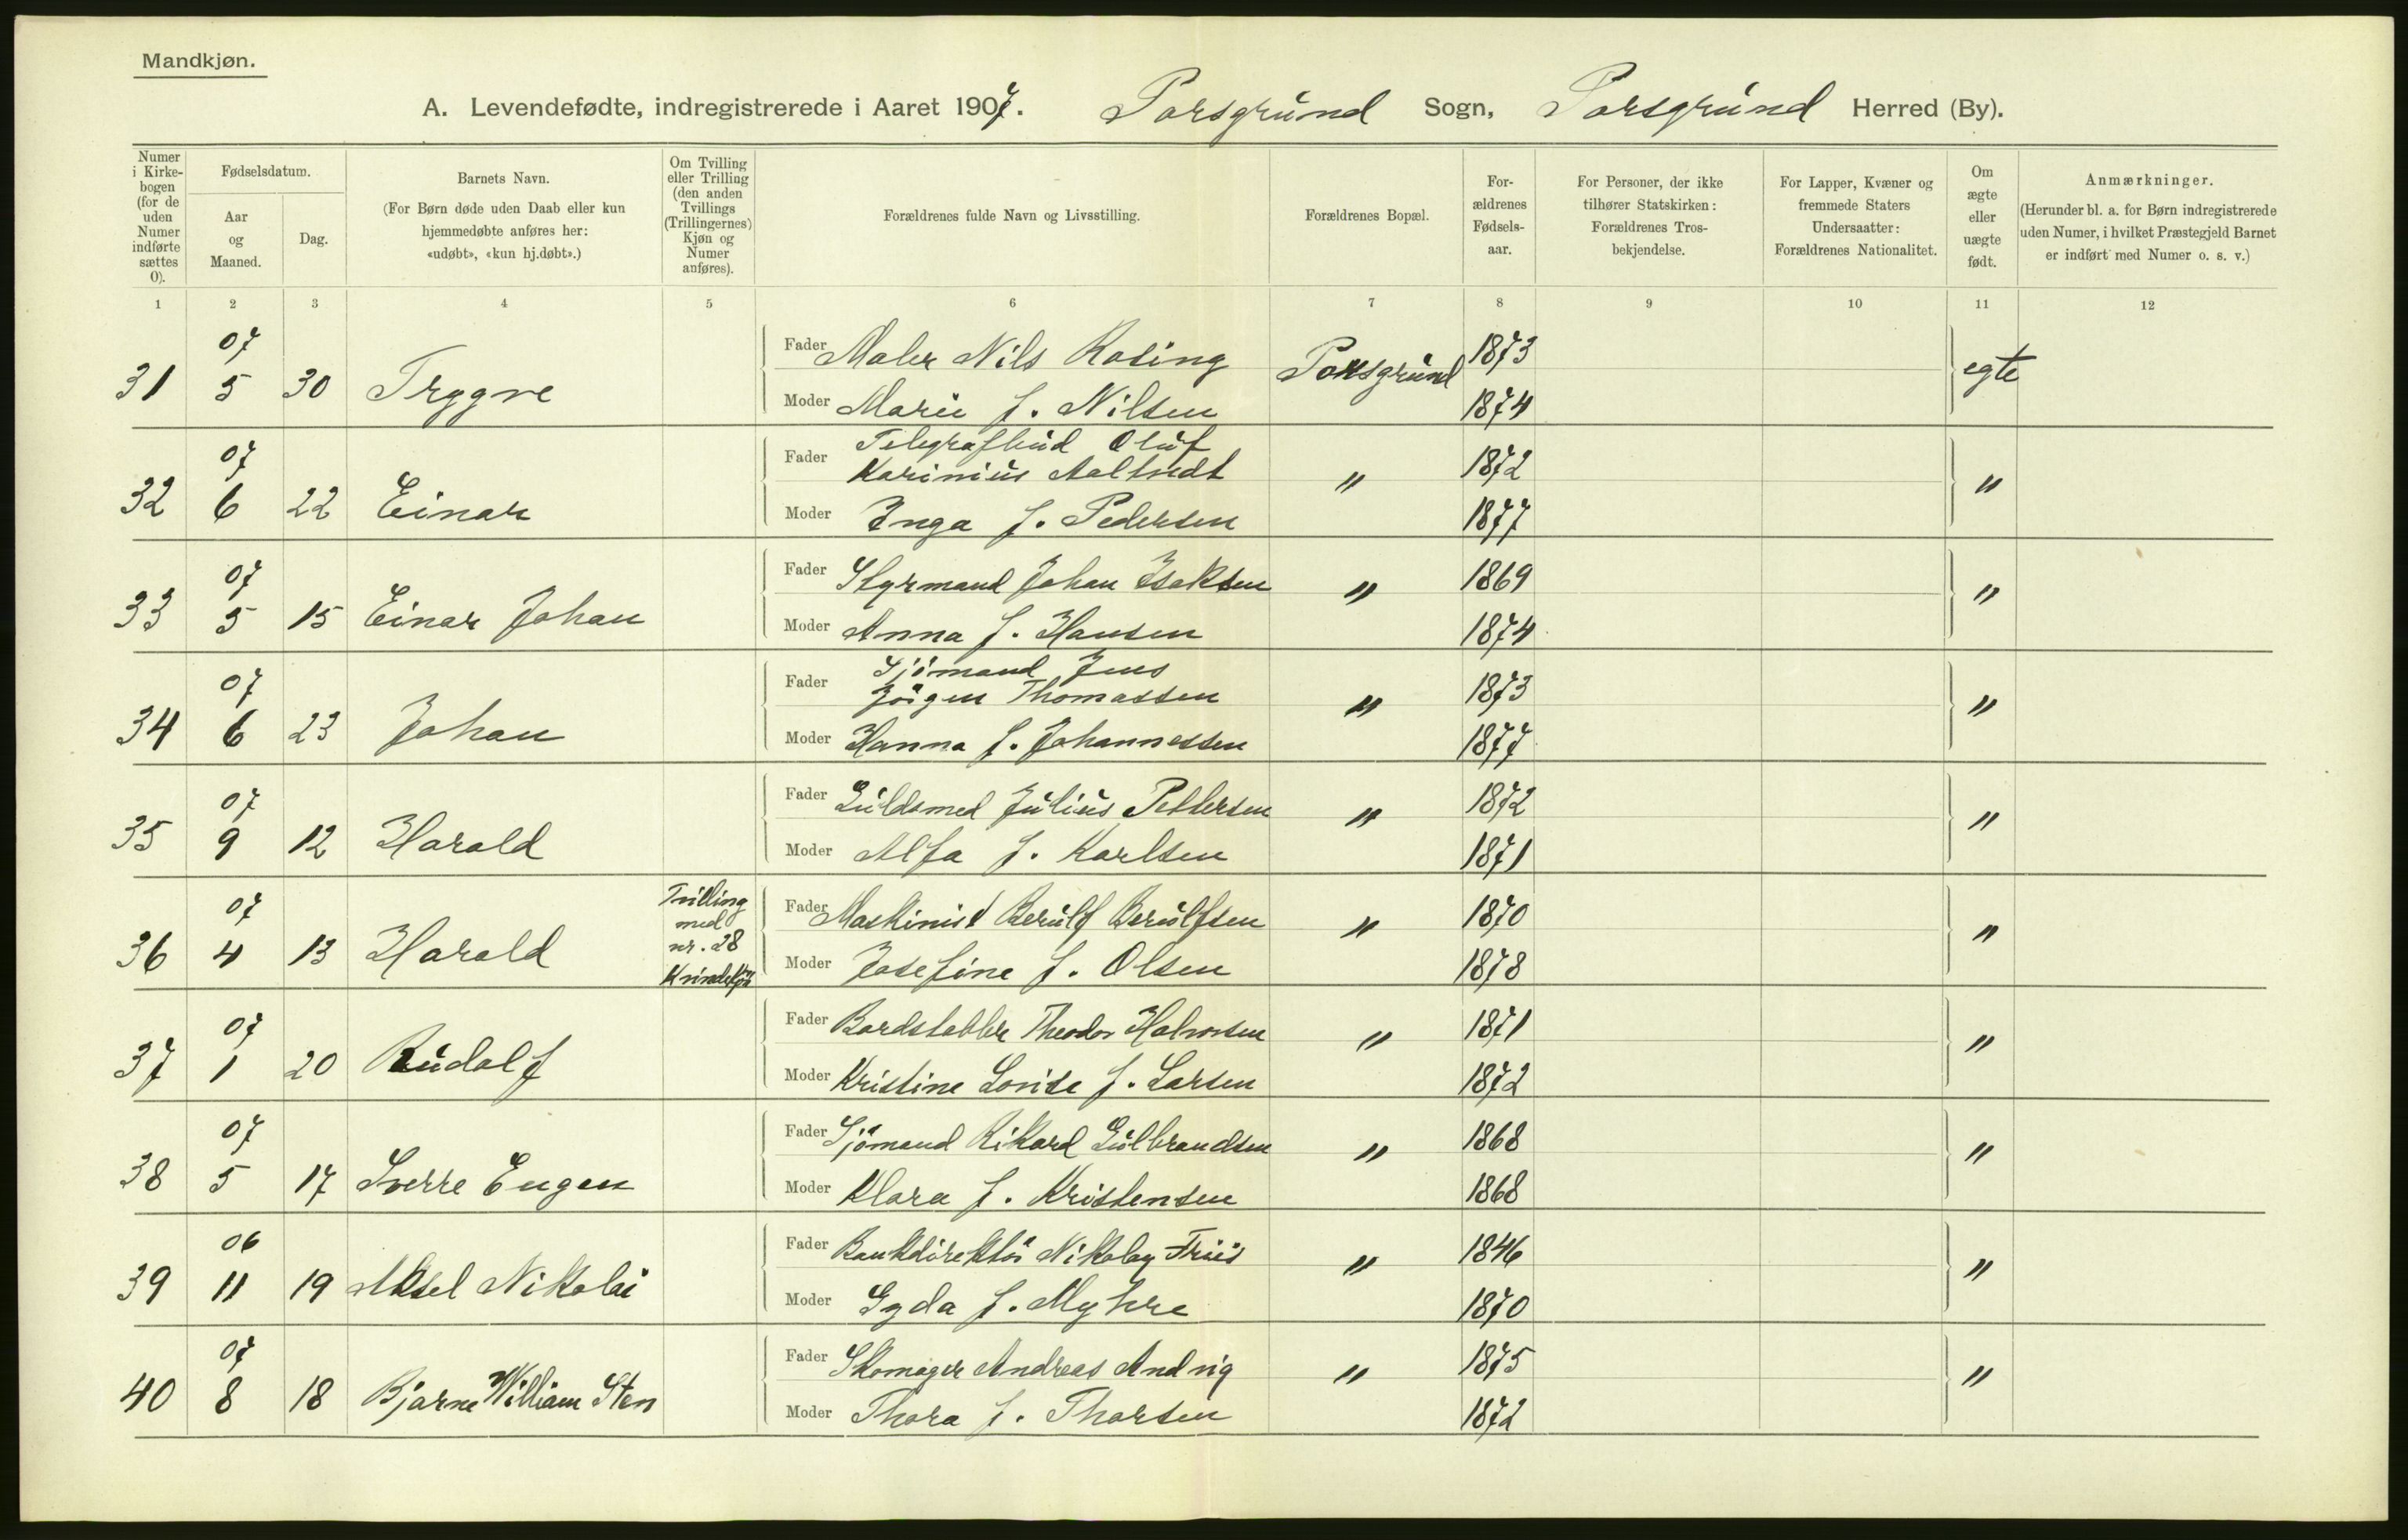 Mandkjøn.
A. Levendefødte, indregistrerede i Aaret 1907. Porsgrund Sogn, Porsgrund Herred (By).
Numer i Kirkebogen (for de uden Numer indførte sættes 0).
Fødselsdatum.
Aar og Maaned.
Dag.
Barnets Navn.
(For Børn døde uden Daab eller kun hjemmedøbte anføres her: «udøbt», «kun hj.døbt».)
Om Tvilling eller Trilling (den anden Tvillings (Trillingernes) Kjøn og Numer anføres).
Forældrenes fulde Navn og Livsstilling.
Forældrenes Bopæl.
Forældrenes Fødselsaar.
For Personer, der ikke tilhører Statskirken: Forældrenes Trosbekjendelse.
For Lapper, Kvæner og fremmede Staters Undersaatter: Forældrenes Nationalitet.
Om ægte eller uægte født.
Anmærkninger.
(Herunder bl. a. for Børn indregistrerede uden Numer, i hvilket Præstegjeld Barnet er indført med Numer o. s. v.)
1 2 3 4 5 6 7 8 9 10 11 12
31 07 5 30 Trygve Fader Maler Nils Rosing Porsgrund 1873 egte
Moder Marie f. Nilsen 1874
32 07 6 22 Einar Fader Telegrafbud Oluf
Karinius Aaltvedt " 1872 "
Moder Inga f. Pedersen 1877
33 07 5 15 Einar Johan Fader Styrmand Johan Isaksen " 1869 "
Moder Anna f. Hansen 1874
34 07 6 23 Johan Fader Sjömand Jens
Jörgen Thomassen " 1873 "
Moder Hanna f. Johannessen 1877
35 07 9 12 Harald Fader Guldsmed Julius Pettersen " 1872 "
Moder Alfa f. Karlsen 1871
36 07 4 13 Harald Tvilling
med
nr. 28
Kvindekjön
Fader Maskinist Berulf Berulfsen " 1870 "
Moder Josefine f. Olsen 1878
37 07 1 20 Rudolf Fader Bordstabler Theodor Halvorsen " 1871 "
Moder Kristine Lovise f. Larsen 1872
38 07 5 17 Sverre Eugen Fader Sjömand Rikard Gulbrandsen " 1868 "
Moder Klara f. Kristensen 1868
39 06 11 19 Aksel Nikolai Fader Bankdirektör Nikolay Friis " 1846 "
Moder Gyda f. Myhre 1870
40 07 8 18 Bjarne William Sten Fader Skomager Andreas Andvig " 1875 "
Moder Thora f. Thorsen 1872